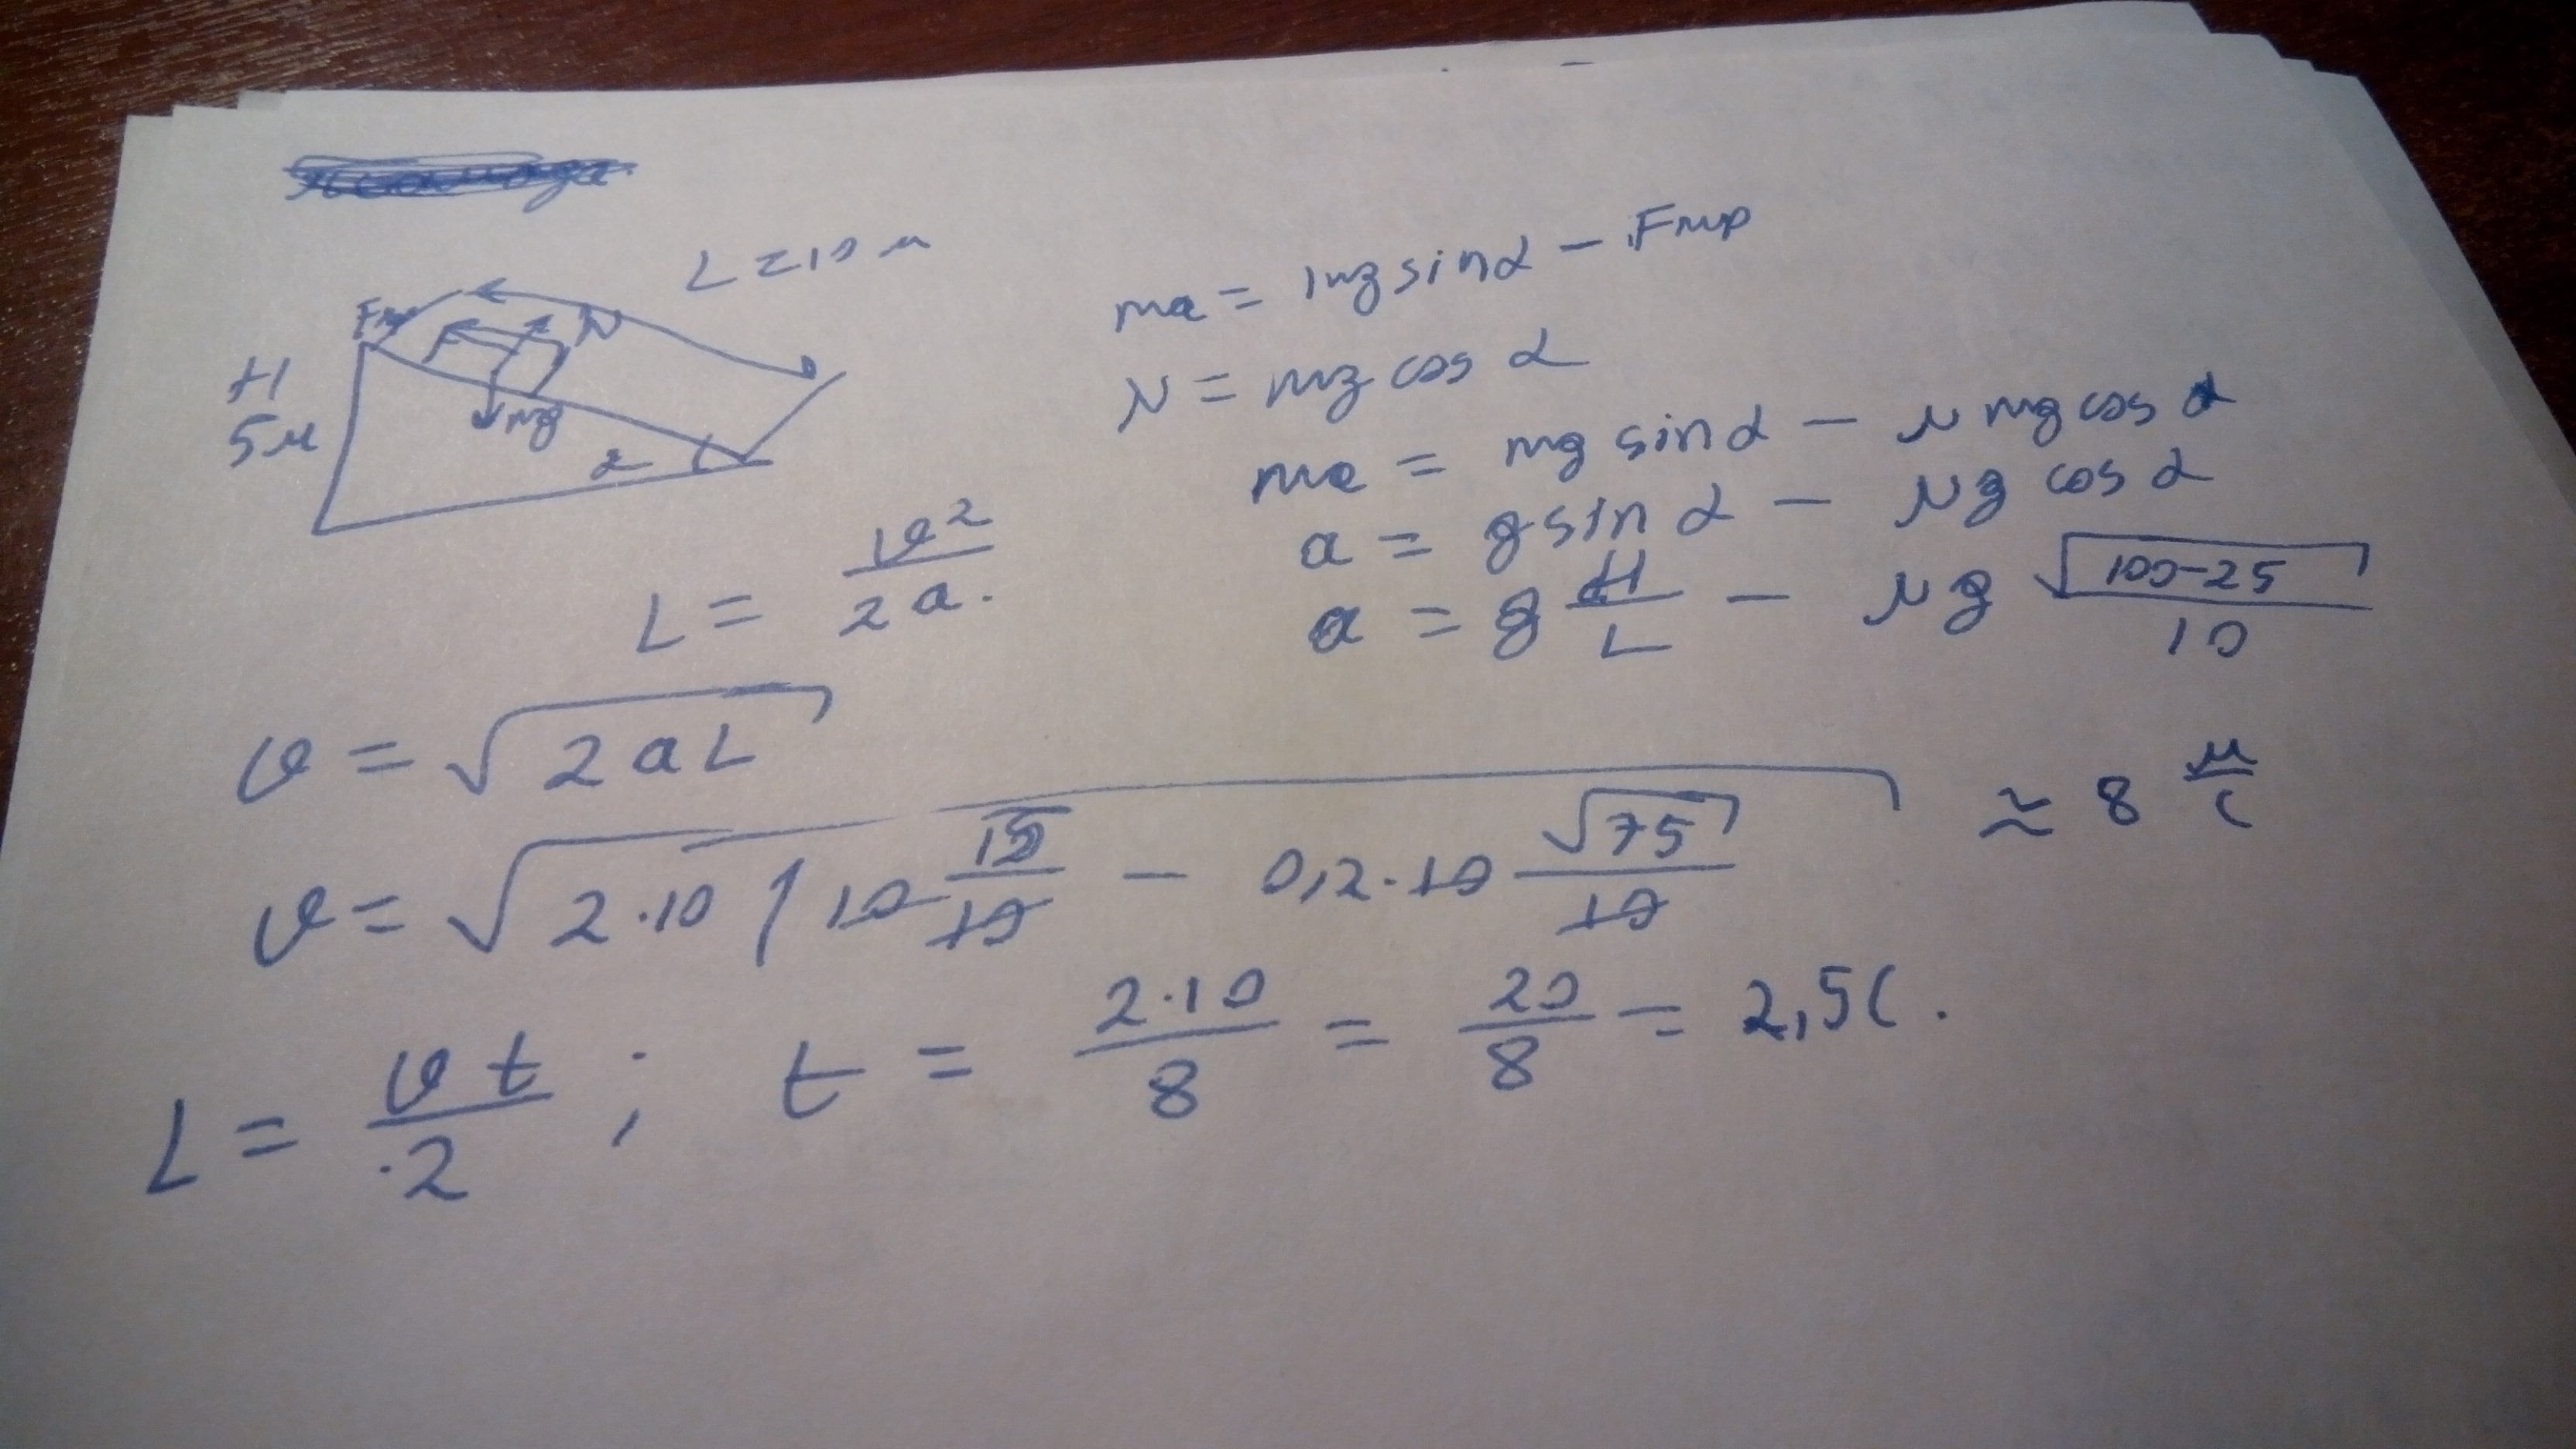 L = 10 м
Fтр
N
H
5м
mg
α
ma = mg sinα − Fтр
N = mg cos α
ma = mg sinα − μ mg cos α
a = g sin α − μg cos α
a = g H/L − μg √(100−25)/10
L = v²/2a.
v = √(2aL)
≈ 8 м/с
L = vt/2 ; t = 2·10/8 = 20/8 = 2,5с.